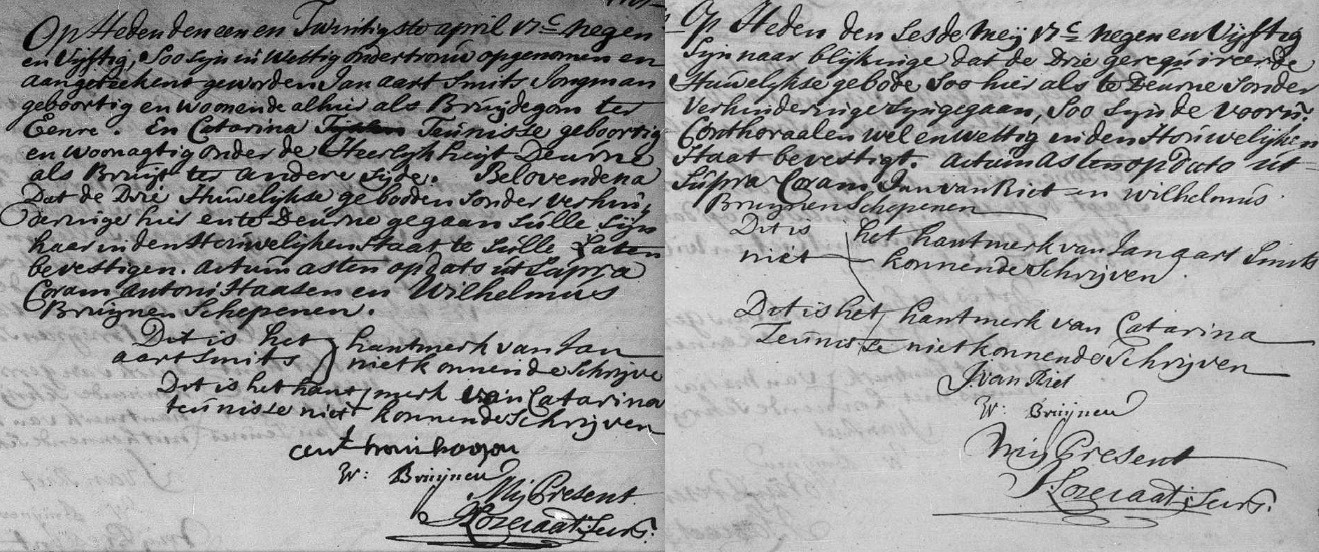 Op Heden den een en Twintigste april 17c negen
en Vijftig, Soo sijn in Wettig ondertrouw opgenomen en
aangetekent geworden Jan aart Smits Jongman
geboortig en woonende alhier als Bruijdegom ter
Eenre. En Catarina Teunisse geboortig
en woonagtig onder de Heerlijkheijt Deurne
als Bruijt ter andere sijde. Belovende na
Dat de Drie Huwelijkse geboden sonder verhin,
deringe hier en te Deurne gegaan sulle sijn
haar in den Houwelijken staat te sulle Laten
bevestigen. actum asten op dato ut supra
Coram antoni Haasen en Wilhelmus
Bruijnen Schepenen.
Dit is het hantmerk van Jan
aart Smits niet konnende Schrijve
Dit is het hant merk van Catarina
teunisse niet konnende Schrijven
W: Bruijnen
Mij Present
Secrs.
Op Heden den Sesde Meij 17c negen en Vijftig
Sijn naar blijkinge dat de Drie gerequireerde
Huwelijkse gebode Soo hier als te Deurne sonder
Verhinderinge sijn gegaan, Soo sijn de Voorn.
Conthoraalen wel en wettig in den Houwelijken
Staat bevestigt. actum Asten op dato ut
Supra Coram Jan van Riet en Wilhelmus
Bruijnen Schepenen
Dit is het hantmerk van Jan aart Smits
niet konnende Schrijven
Dit is het hantmerk van Catarina
Teunisse niet konnende Schrijven
J. van Riet
W: Bruijnen
Mij Present
Secrs.